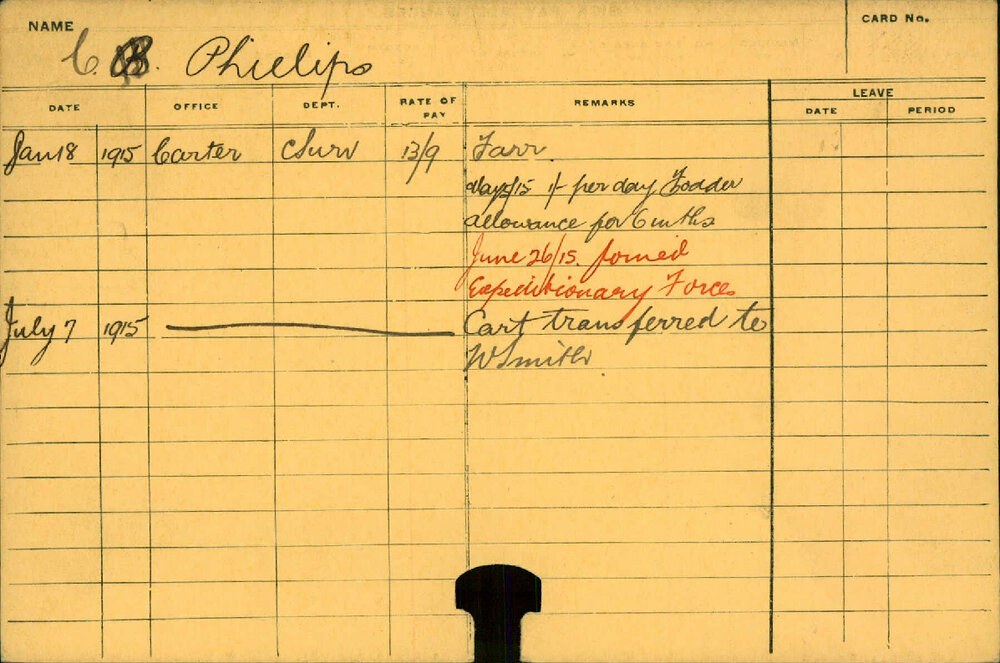 NAME
CARD No.
C. B. Phillips
DATE OFFICE DEPT. RATE OF PAY REMARKS LEAVE
DATE PERIOD
Jan 18 1915 Carter CSurv 13/9 Farr.
/15 1/- per day Fodder
allowance for 6 mths
June 26/15. Joined
Expeditionary Force
July 7 1915 Cart transferred to
W Smith